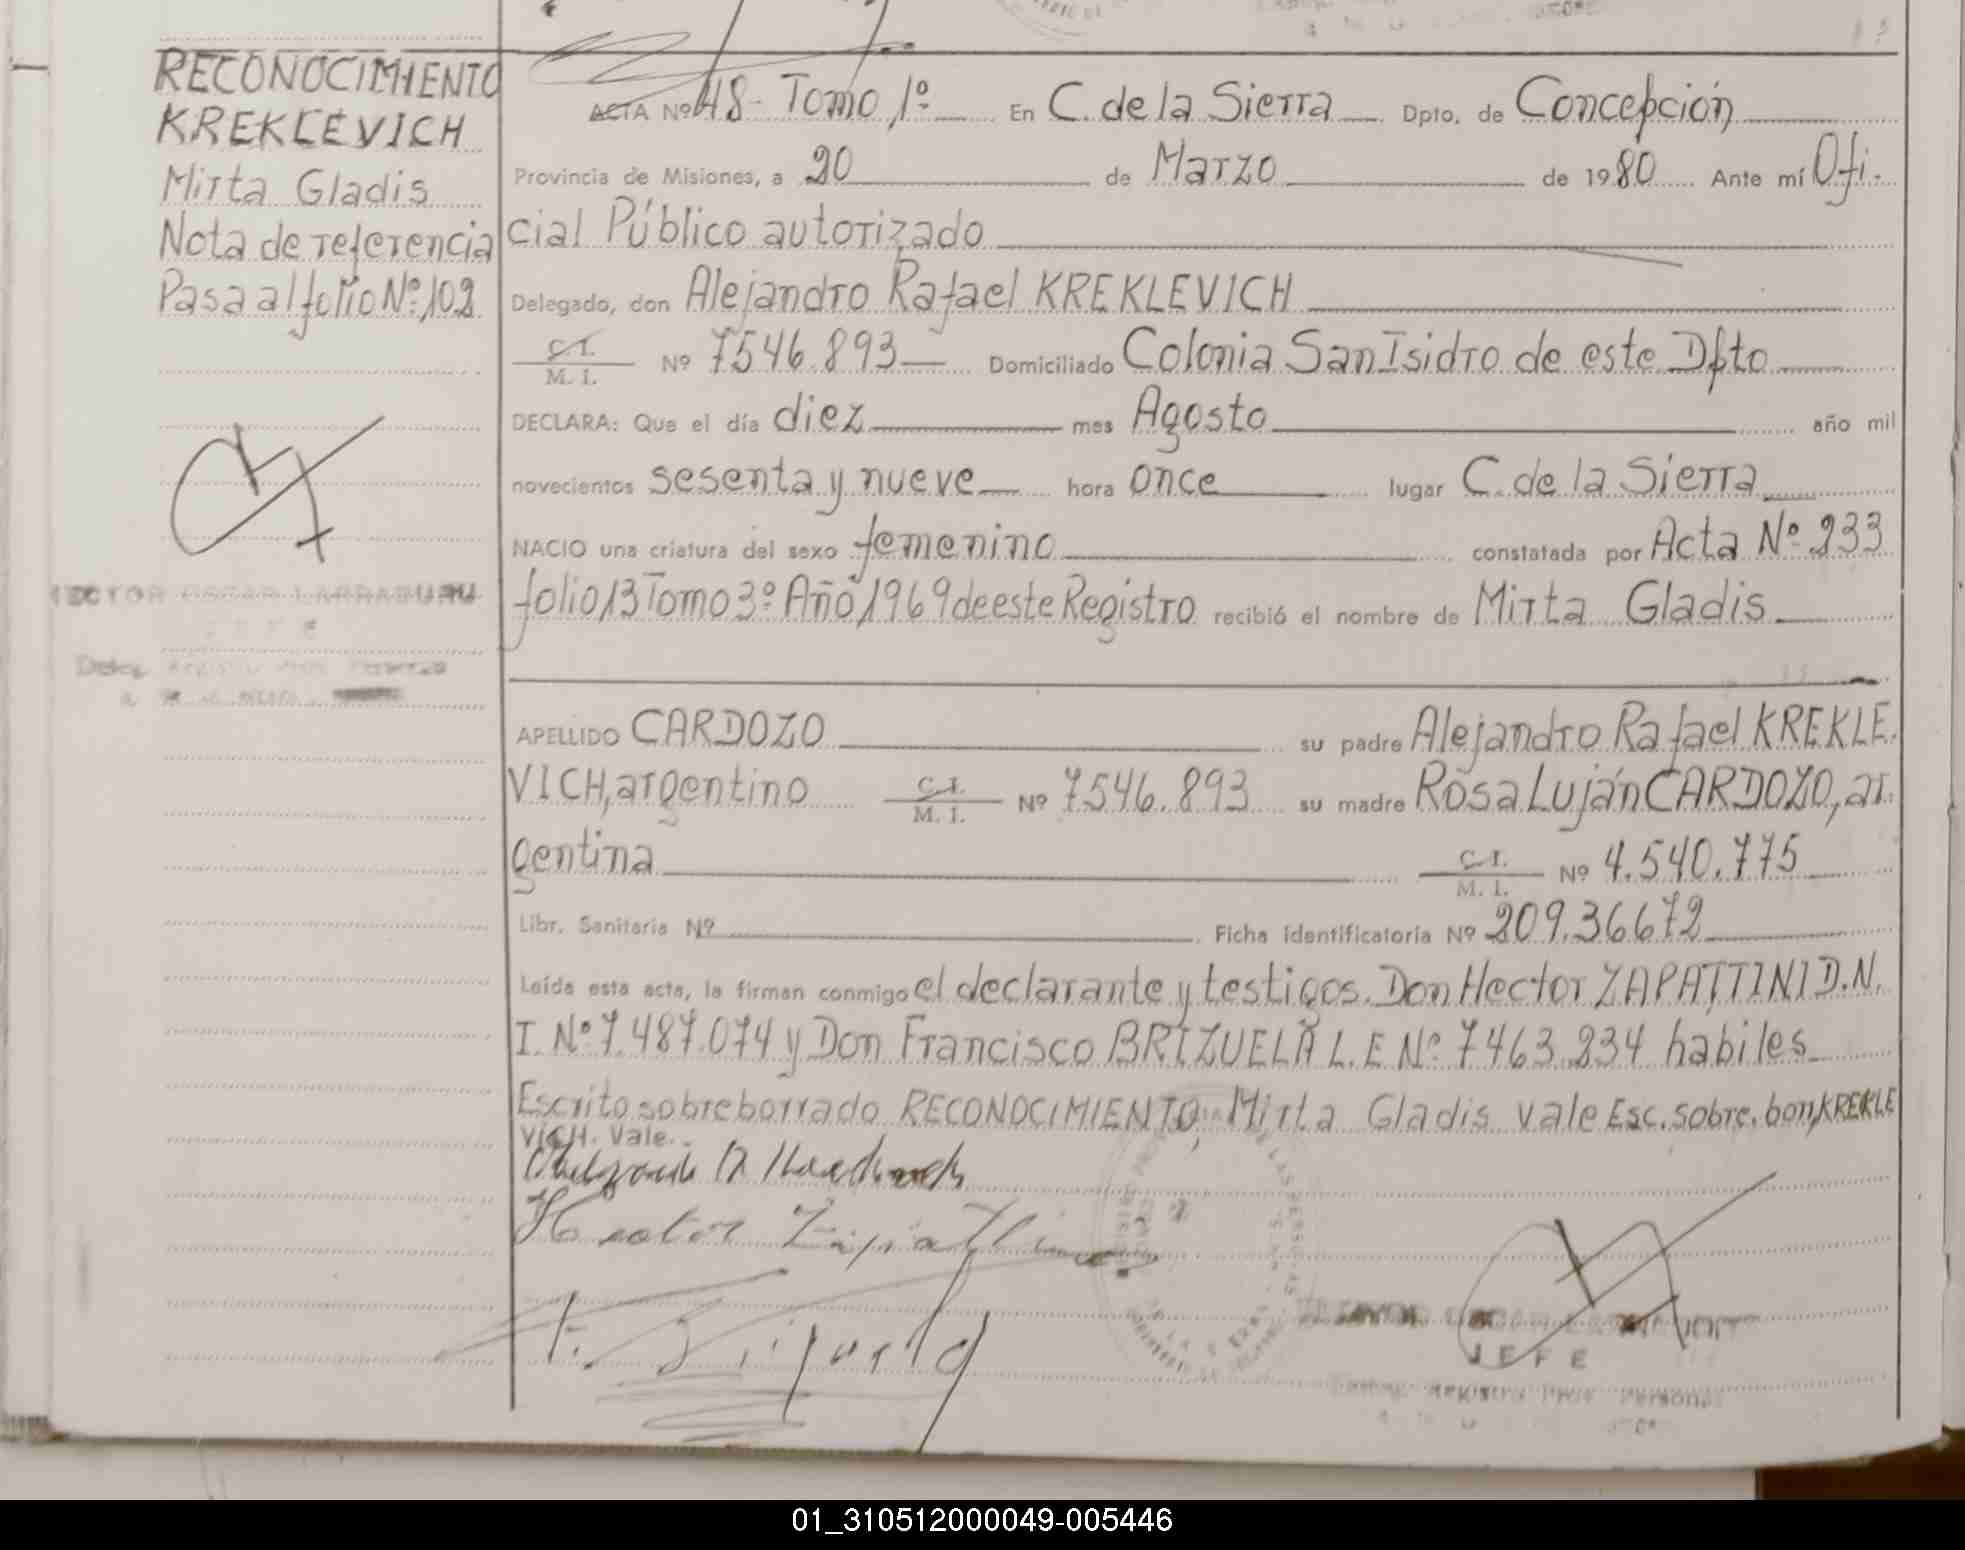 RECONOCIMIENTO
KREKLEVICH
Mirta Gladis
Nota de referencia
Pasa al folio Nº 102
HECTOR OSCAR LARRABURU
JEFE
ACTA Nº 48 - Tomo 1º En C. de la Sierra Dpto. de Concepción
Provincia de Misiones, a 20 de Marzo de 1980 Ante mí Ofi-
cial Público autorizado
Delegado, don Alejandro Rafael KREKLEVICH
C.I.
M. I. Nº 7546.893 Domiciliado Colonia San Isidro de este Dpto
DECLARA: Que el día diez mes Agosto año mil
novecientos sesenta y nueve hora once lugar C. de la Sierra
NACIO una criatura del sexo femenino constatada por Acta Nº 233
folio 13 Tomo 3º Año 1969 de este Registro recibió el nombre de Mirta Gladis
APELLIDO CARDOZO su padre Alejandro Rafael KREKLE-
VICH, argentino C.I. M. I. Nº 7546.893 su madre Rosa Luján CARDOZO, ar-
gentina C.I. M. I. Nº 4.540.775
Libr. Sanitaria Nº Ficha identificatoria Nº 209.36672
Leída esta acta, la firman conmigo el declarante y testigos. Don Hector ZAPATTINI D.N.
I. Nº 7.487.074 y Don Francisco BRIZUELA L.E Nº 7463.234 habiles
Escrito sobre borrado RECONOCIMIENTO, Mirta Gladis vale Esc. sobre. borr, KREKLE
VICH. Vale.
Hector Zapattini
JEFE
Registro Prov. Personas
01_310512000049-005446